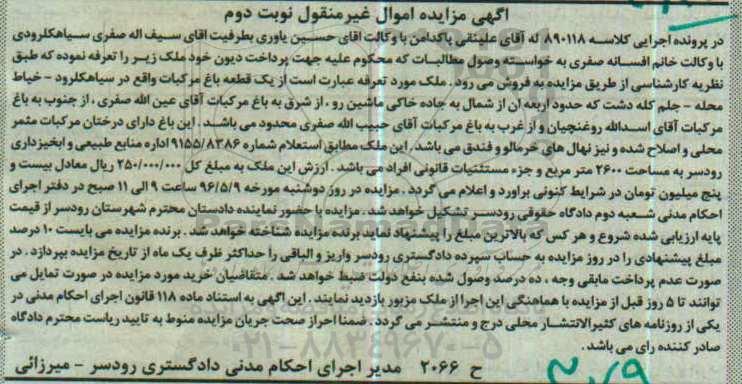 آگهی مزایده اموال غیرمنقول نوبت دوم
در پرونده اجرایی کلاسه ۸۹۰۱۱۸ له آقای علینقی پاکدامن با وکالت اقای حسین یاوری بطرفیت اقای سیف اله صفری سیاهکلرودی
با وکالت خانم افسانه صفری به خواسته وصول مطالبات که محکوم علیه جهت پرداخت دیون خود ملک زیر را تعرفه نموده که طبق
نظریه کارشناسی از طریق مزایده به فروش می رود . ملک مورد تعرفه عبارت است از یک قطعه باغ مرکبات واقع در سیاهکلرود - خیاط
محله - جلم کله دشت که حدود اربعه آن از شمال به جاده خاکی ماشین رو ، از شرق به باغ مرکبات آقای عین الله صفری ، از جنوب به باغ
مرکبات آقای اسدالله روغنچیان و از غرب به باغ مرکبات آقای حبیب الله صفری محدود می باشد . این باغ دارای درختان مرکبات مثمر
محلی و اصلاح شده و نیز نهال های خرمالو و فندق می باشد . این ملک مطابق استعلام شماره ۹۱۵۵/۸۳۸۶ اداره منابع طبیعی و ابخیزداری
رودسر به مساحت ۲۶۰۰ متر مربع و جزء مستثنیات قانونی افراد می باشد . ارزش این ملک به مبلغ کل ۲۵۰/۰۰۰/۰۰۰ ریال معادل بیست و
پنج میلیون تومان در شرایط کنونی براورد و اعلام می گردد . مزایده در روز دوشنبه مورخه ۹۶/۵/۹ ساعت ۹ الی ۱۱ صبح در دفتر اجرای
احکام مدنی شعبه دوم دادگاه حقوقی رودسر تشکیل خواهد شد . مزایده با حضور نماینده دادستان محترم شهرستان رودسر از قیمت
پایه ارزیابی شده شروع و هر کس که بالاترین مبلغ را پیشنهاد نماید برنده مزایده شناخته خواهد شد . برنده مزایده می بایست ۱۰ درصد
مبلغ پیشنهادی را در روز مزایده به حساب سپرده دادگستری رودسر واریز و الباقی را حداکثر ظرف یک ماه از تاریخ مزایده بپردازد . در
صورت عدم پرداخت مابقی وجه ، ده درصد وصول شده بنفع دولت ضبط خواهد شد . متقاضیان خرید مورد مزایده در صورت تمایل می
توانند تا ۵ روز قبل از مزایده با هماهنگی این اجرا از ملک مزبور بازدید نمایند . این اگهی به استناد ماده ۱۱۸ قانون اجرای احکام مدنی در
یکی از روزنامه های کثیرالانتشار محلی درج و منتشر می گردد . ضمنا احراز صحت جریان مزایده منوط به تایید ریاست محترم دادگاه
صادر کننده رای می باشد .
ح ۲۰۶۶ مدیر اجرای احکام مدنی دادگستری رودسر - میرزائی
۰۲۱-۸۸۳۴۹۶۷۰-۵